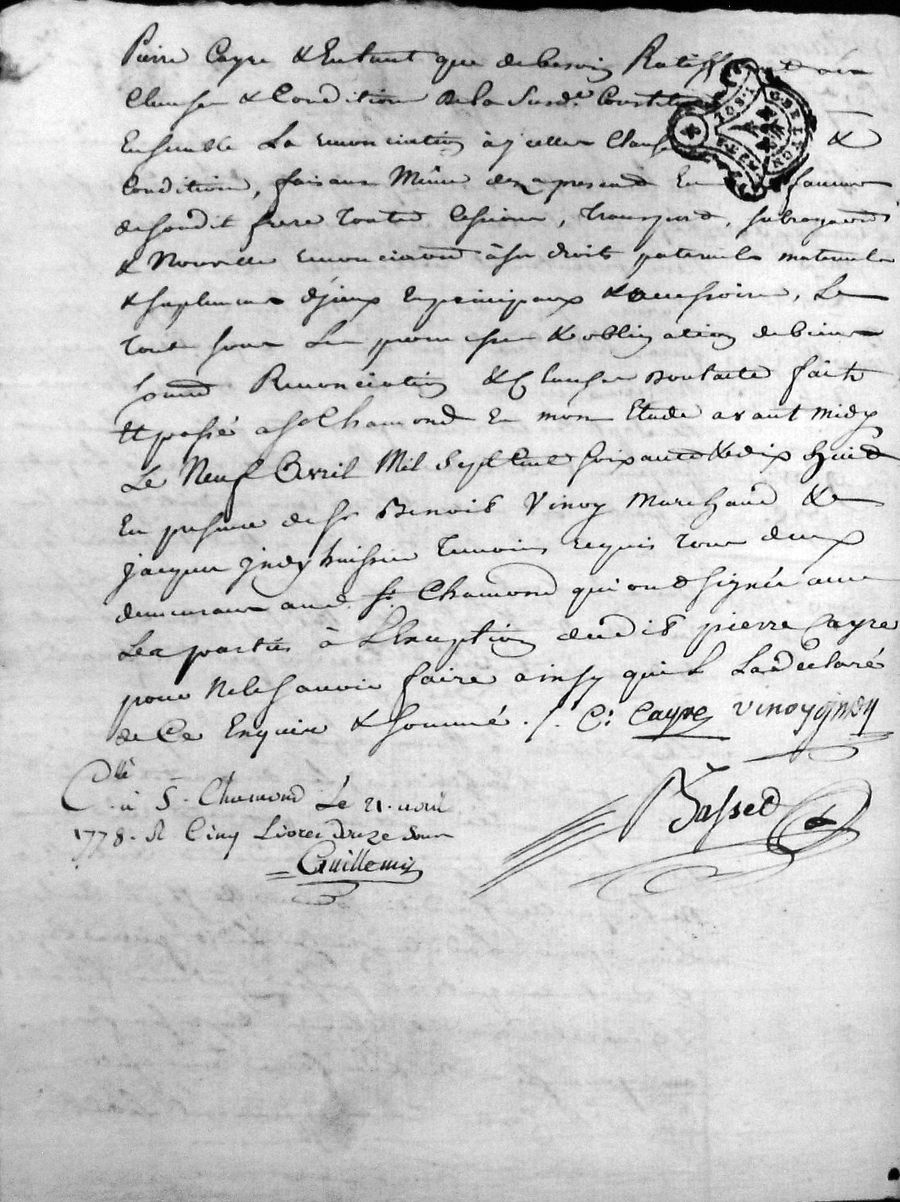 Pierre Cayre & Entant que de besoin
Clauses & Conditions de la Susde.
Ensemble La renonciation à jcelles &
Condition, faisant Même dez apresend En faveur
desondit frere toutes Cessions, Transports, subrogations
& Nouvelle renonciation à ses droits paternels maternels
& suplement d'jceux En principaux & accessoires, Le
tout sous Les promesses & obligation de biens
Renonciation & Clauses fait
Et passé a St Chamond En mon Etude avant midy
Le Neuf Avril Mil Sept Cent soixante & dix huit
En presence de sr Benoist Vinoy Marchand & de
jacques jndy huissier Temoins requis tous deux
demeurant aud. St. Chamond qui ond signée avec
Les parties à L'Exception dudit pierre Cayre
pour Ne le savoir faire ainsy quil La declaré
de Ce Enquis & sommé ./. C: Cayre Vinoy jndy
G. DE LYON
1. SOL
Clle
à S. Chamond Le 21. avril
1778. R Cinq Livres douze sous
Basset
Guillemin